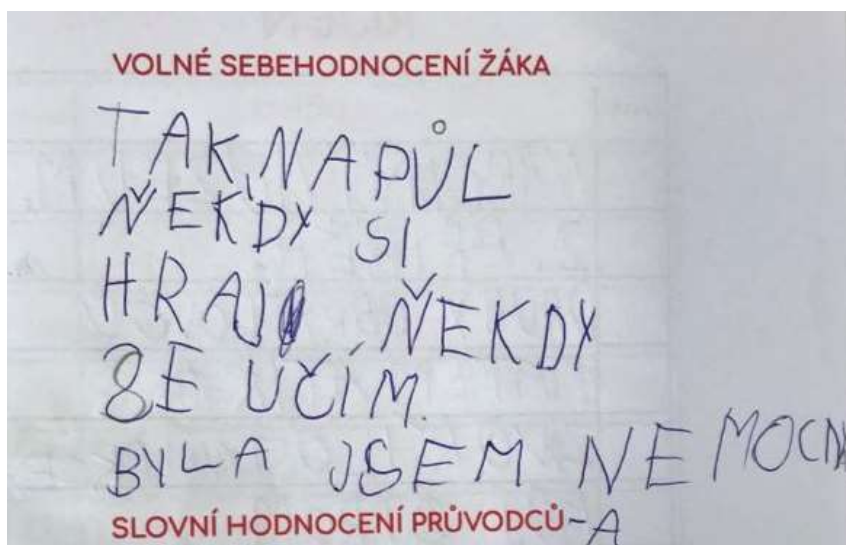 VOLNÉ SEBEHODNOCENÍ ŽÁKA
TAK, NAPŮL
ŇEKDY SI
HRAJ ŇEKDY
SE UČÍM.
BYLA JSEM NEMOCN
SLOVNÍ HODNOCENÍ PRŮVODCŮ -A